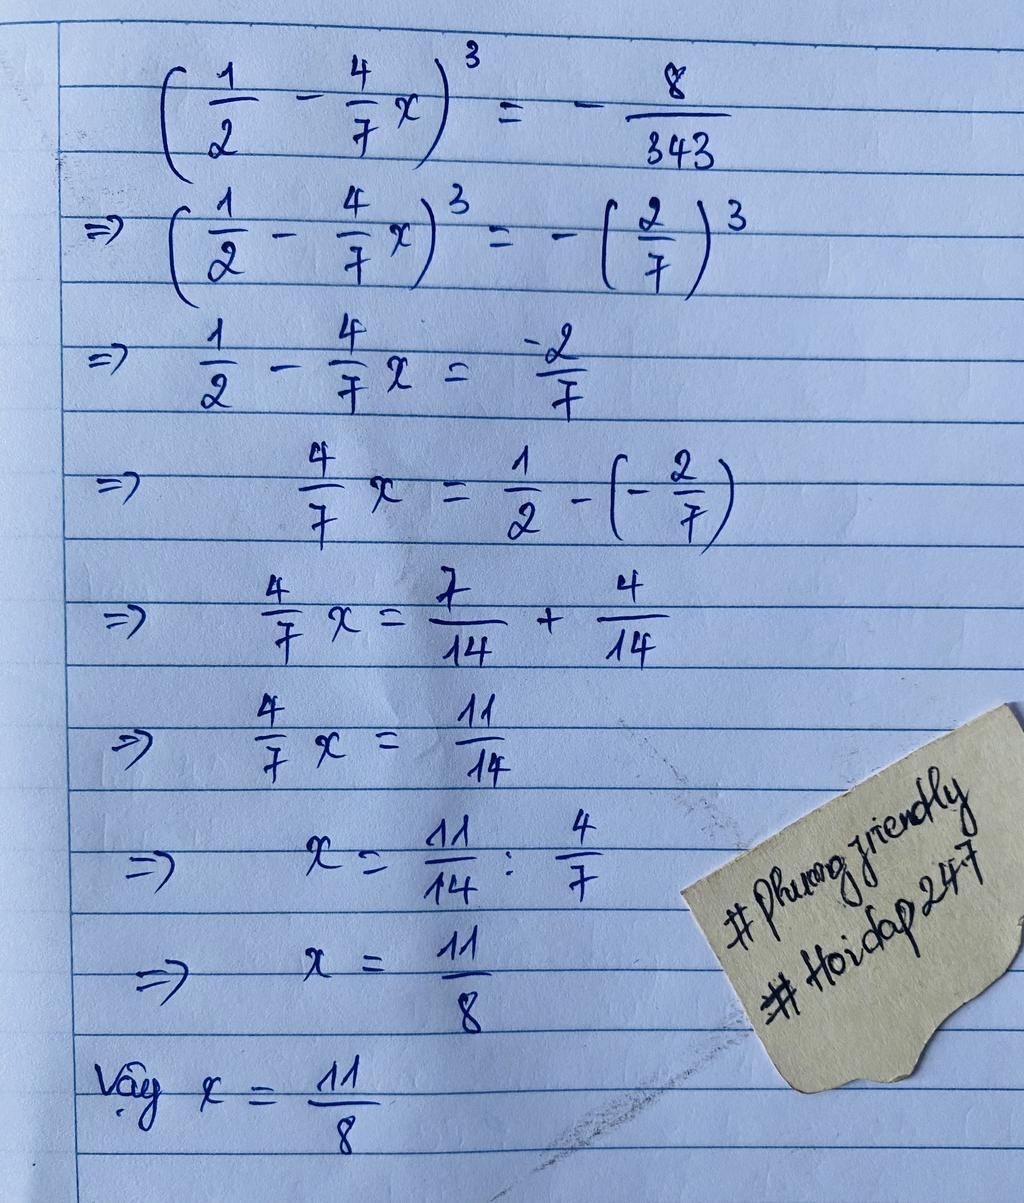 (1/2 - 4/7 x)³ = - 8/343
=> (1/2 - 4/7 x)³ = - (2/7)³
=> 1/2 - 4/7 x = -2/7
=> 4/7 x = 1/2 - (- 2/7)
=> 4/7 x = 7/14 + 4/14
=> 4/7 x = 11/14
=> x = 11/14 : 4/7
=> x = 11/8
Vậy x = 11/8
#Phuongfriendly
#Hoidap247